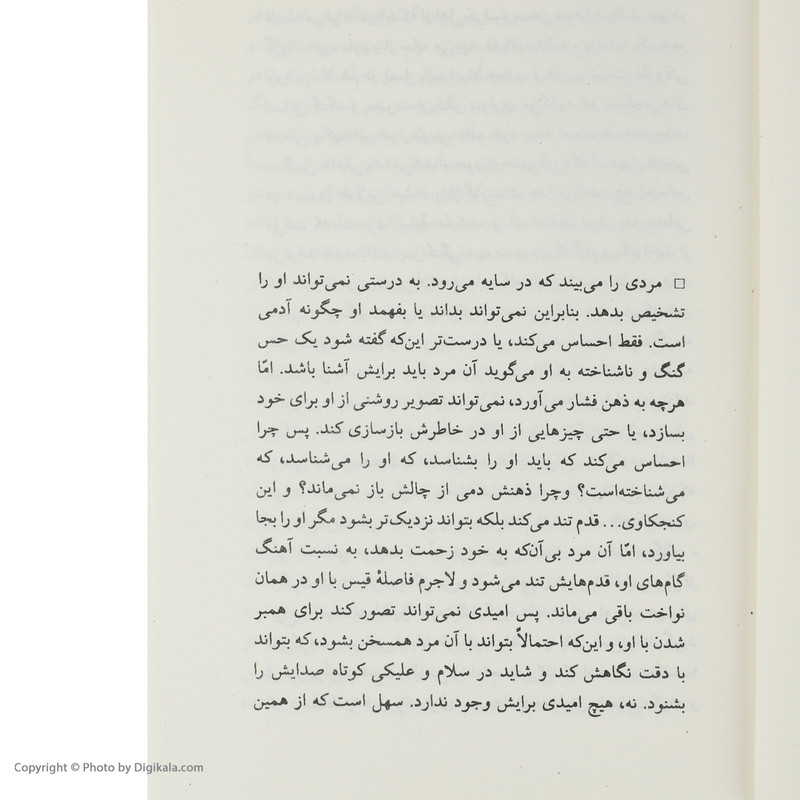 □ مردی را می‌بیند که در سایه می‌رود. به درستی نمی‌تواند او را
تشخیص بدهد. بنابراین نمی‌تواند بداند یا بفهمد او چگونه آدمی
است. فقط احساس می‌کند، یا درست‌تر این‌که گفته شود یک حس
گنگ و ناشناخته به او می‌گوید آن مرد باید برایش آشنا باشد. امّا
هرچه به ذهن فشار می‌آورد، نمی‌تواند تصویر روشنی از او برای خود
بسازد، یا حتی چیزهایی از او در خاطرش بازسازی کند. پس چرا
احساس می‌کند که باید او را بشناسد، که او را می‌شناسد، که
می‌شناخته‌است؟ وچرا ذهنش دمی از چالش باز نمی‌ماند؟ و این
کنجکاوی... قدم تند می‌کند بلکه بتواند نزدیک‌تر بشود مگر او را بجا
بیاورد، امّا آن مرد بی‌آن‌که به خود زحمت بدهد، به نسبت آهنگ
گام‌های او، قدم‌هایش تند می‌شود و لاجرم فاصلهٔ قیس با او در همان
نواخت باقی می‌ماند. پس امیدی نمی‌تواند تصور کند برای همبر
شدن با او، و این‌که احتمالاً بتواند با آن مرد همسخن بشود، که بتواند
با دقت نگاهش کند و شاید در سلام و علیکی کوتاه صدایش را
بشنود. نه، هیچ امیدی برایش وجود ندارد. سهل است که از همین
Copyright © Photo by Digikala.com